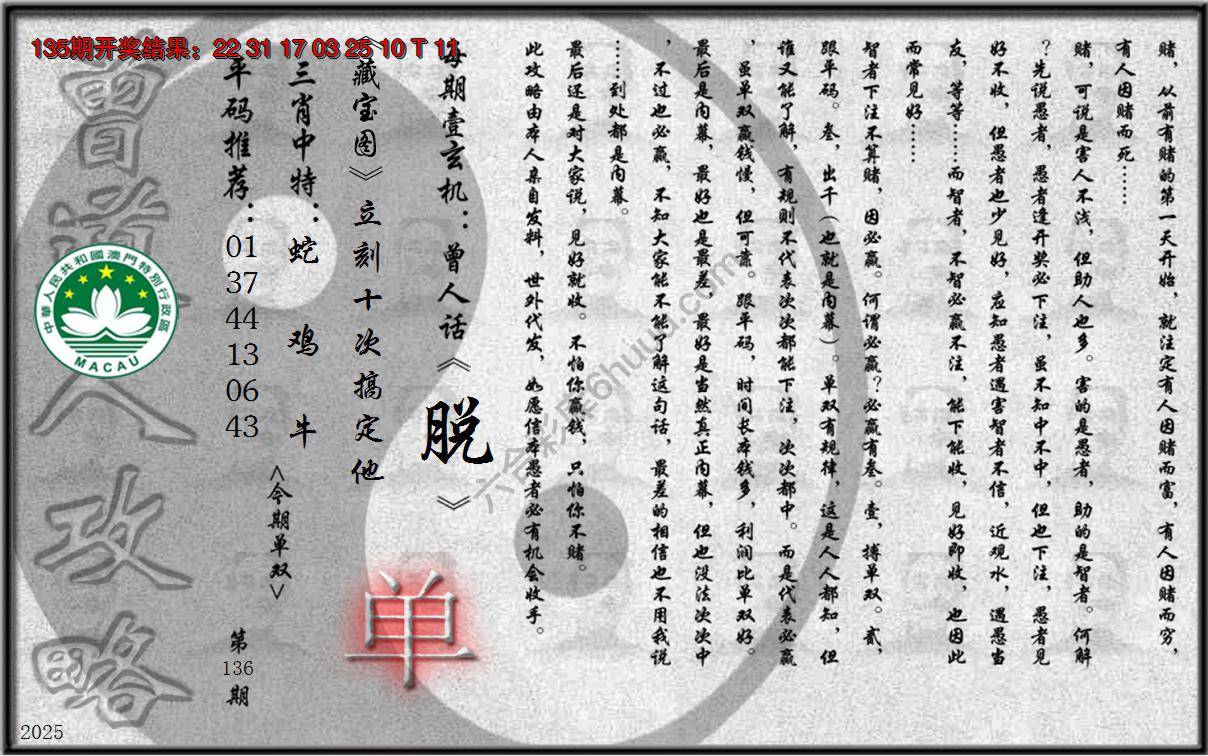 135期开奖结果：22 31 17 03 25 10 T 11
赌，从前有赌的第一天开始，就注定有人因赌而富，有人因赌而穷，
有人因赌而死……
赌，可说是害人不浅，但助人也多。害的是愚者，助的是智者。何解
？先说愚者，愚者逢开奖必下注，虽不知中不中，但也下注，愚者见
好不收，但愚者也少见好，应知愚者遇害智者不信，近观水，遇愚当
友，等等……而智者，不智必赢不注，能下能收，见好即收，也因此
而常见好……
智者下注不算赌，因必赢。何谓必赢？必赢有叁。壹，搏单双。贰，
跟平码。叁，出千（也就是内幕）。单双有规律，这是人人都知，但
谁又能了解，有规则不代表次次都能下注，次次都中。而是代表必赢
，虽单双赢钱慢，但可靠。跟平码，时间长本钱多，利润比单双好。
最后是内幕，最好也是最差，最好是当然真正内幕，但也没法次次中
，不过也必赢，不知大家能不能了解这句话，最差的相信也不用我说
……到处都是内幕。
最后还是对大家说，见好就收。不怕你赢钱，只怕你不赌。
此攻略由本人亲自发料，世外代发，如愿信本愚者必有机会收手。
每期壹玄机：曾人话《脱》
《藏宝图》立刻十次搞定他
单
三肖中特：蛇 鸡 牛
<今期单双>
平码推荐：
01
37
44
13
06
43
第
136
期
曾道人攻略
中華人民共和國澳門特別行政區
MACAU
六合彩库6huuu.com
2025